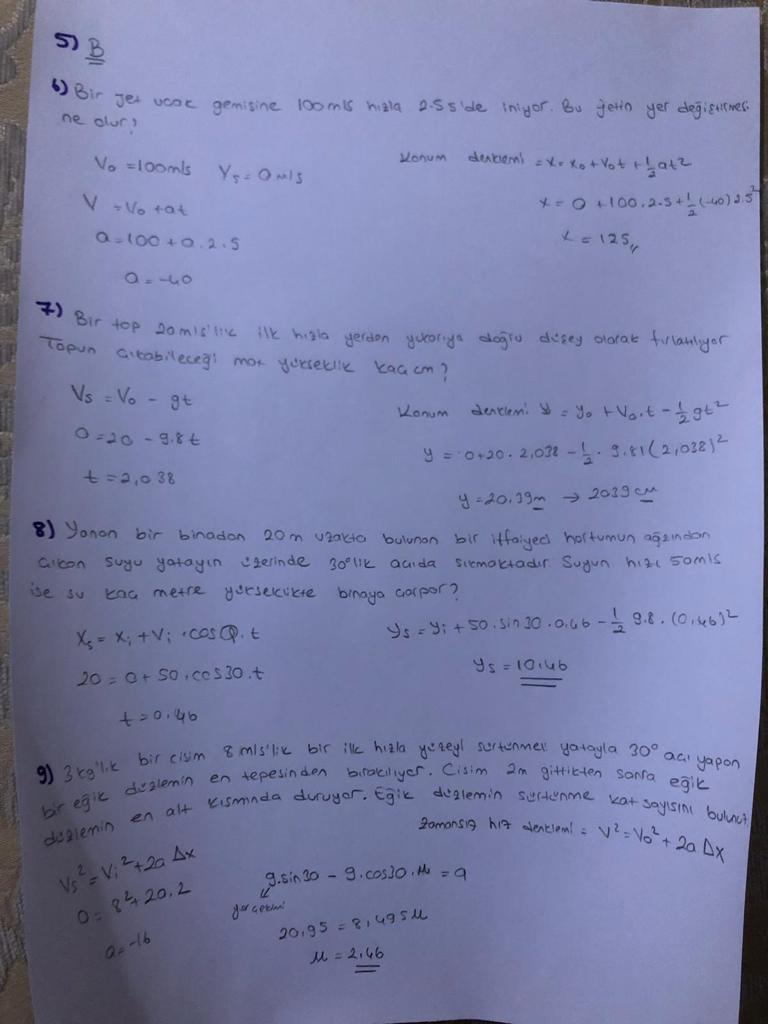 5) B
6) Bir jet uçak gemisine 100m/s hızla 2.5s'de iniyor. Bu jetin yer değiştirmesi
ne olur?
V₀ = 100m/s Vs = 0 m/s
V = V₀ + at
a = 100 + a.2.5
a = -40
Konum denklemi = x = x₀ + V₀t + 1/2 at²
x = 0 + 100.2.5 + 1/2 (-40) 2.5²
x = 125
7) Bir top 20m/s'lik ilk hızla yerden yukarıya doğru düşey olarak fırlatılıyor
Topun çıkabileceği max yükseklik kaç cm?
Vs = V₀ - gt
0 = 20 - 9.8t
t = 2,038
Konum denklemi y = y₀ + V₀.t - 1/2 gt²
y = 0 + 20.2,038 - 1/2 . 9.81(2,038)²
y = 20,39m → 2039 cm
8) Yanan bir binadan 20m uzakta bulunan bir itfaiyeci hortumun ağzından
çıkan suyu yatayın üzerinde 30°lik açıda sıkmaktadır Suyun hızı 50m/s
ise su kaç metre yükseklikte binaya çarpar?
Xs = Xi + Vi . cosθ . t
20 = 0 + 50.cos30.t
t = 0.46
ys = yi + 50.sin30.0.46 - 1/2 9.8.(0,46)²
ys = 10.46
9) 3kg'lık bir cisim 8m/s'lik bir ilk hızla yüzeyi sürtünmeli yatayla 30° açı yapan
bir eğik düzlemin en tepesinden bırakılıyor. Cisim 2m gittikten sonra eğik
düzlemin en alt kısmında duruyor. Eğik düzlemin sürtünme katsayısını bulunuz
Zamansız hız denklemi = V² = V₀² + 2a Δx
Vs² = Vi² + 2a Δx
0 = 8² + 2a.2
a = -16
g.sin30 - g.cos30.μ = a
yer çekimi
20,95 = 8,495μ
μ = 2,46